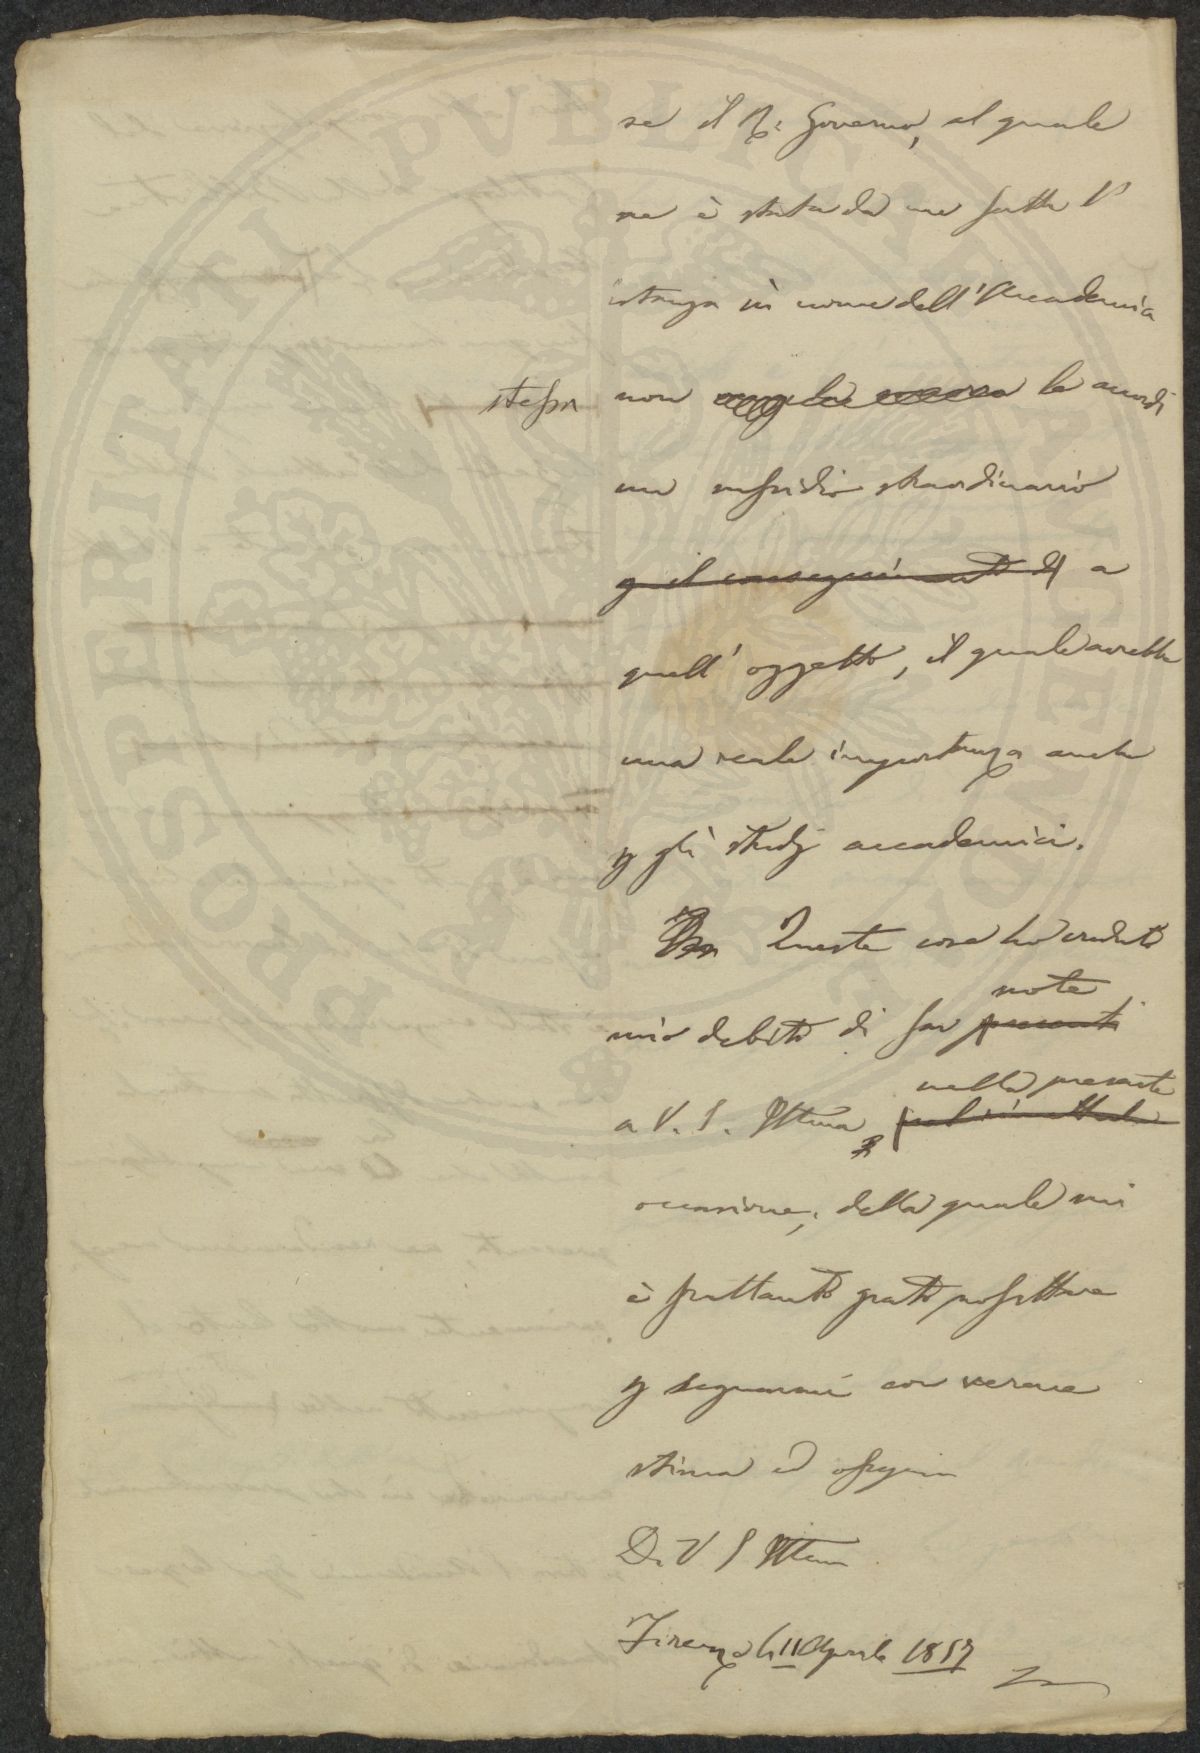 se il R. Governo, al quale
ne è stata da me fatta l'
istanza in nome dell'Accademia
stessa
non le accordi
un sussidio straordinario
p il conseguimento di a
quell'oggetto, il quale avrebbe
una reale importanza anche
p gli studj accademici.
Queste cose ho creduto
note
mio debito di far presenti
nella presente
a V. S. Illma
occasione, della quale mi
è frattanto grato profittare
p segnarmi con verace
stima ed ossequio
Di V S Illma
Firenze li 11 Aprile 1857
PROSPERITATI PVBLICAE AVGENDAE